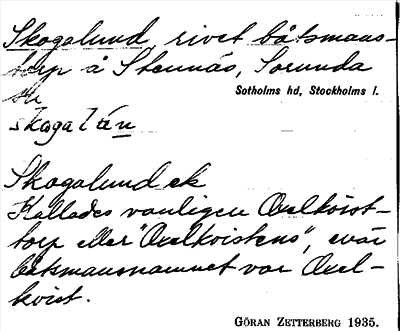 Skogalund, rivet båtsmans-
torp å Stennäs, Sorunda
sn
Sotholms hd, Stockholms l.
skogalån
Skogalund ek
Kallades vanligen Axelkvist-
torp eller "Axelkvistens", enär
båtsmansnamnet var Axel-
kvist.
GÖRAN ZETTERBERG 1935.